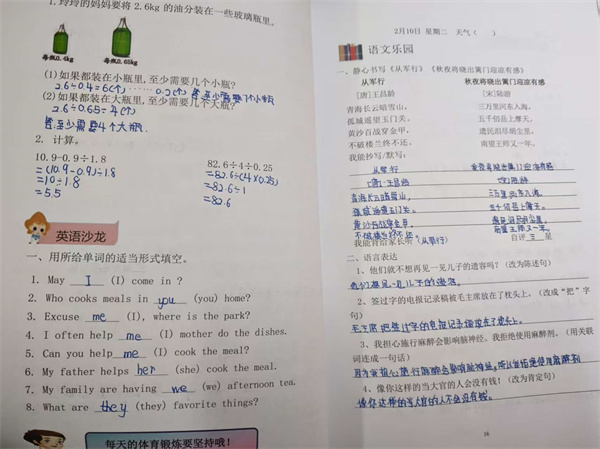 1.玲玲的妈妈要将 2.6kg 的油分装在一些玻璃瓶里。
每瓶0.4kg 每瓶0.65kg
(1)如果都装在小瓶里,至少需要几个小瓶?
2.6÷0.4=6(个)……0.2(个)
(2)如果都装在大瓶里,至少需要几个大瓶?
2.6÷0.65=4(个)
答:至少需要4个大瓶.
2. 计算。
10.9-0.9÷1.8
=(10.9-0.9)÷1.8
=10÷1.8
=5.5
82.6÷4÷0.25
=82.6÷(4×0.25)
=82.6÷1
=82.6
英语沙龙
一、用所给单词的适当形式填空。
1. May I (I) come in ?
2. Who cooks meals in you (you) home?
3. Excuse me (I), where is the park?
4. I often help me (I) mother do the dishes.
5. Can you help me (I) cook the meal?
6. My father helps her (she) cook the meal.
7. My family are having we (we) afternoon tea.
8. What are they (they) favorite things?
每天的体育锻炼要坚持哦!
2月10日 星期二 天气( )
语文乐园
一、静心书写《从军行》《秋夜将晓出篱门迎凉有感》
从军行 秋夜将晓出篱门迎凉有感
[唐]王昌龄 [宋]陆游
青海长云暗雪山, 三万里河东入海,
孤城遥望玉门关。 五千仞岳上摩天。
黄沙百战穿金甲, 遗民泪尽胡尘里,
不破楼兰终不还。 南望王师又一年。
我能抄写/默写:
从军行 秋夜将晓出篱门迎凉有感
[唐]王昌龄 [宋]陆游
青海长云暗雪山, 三万里河东入海,
孤城遥望玉门关。 五千仞岳上摩天。
黄沙百战穿金甲, 遗民泪尽胡尘里,
不破楼兰终不还。 南望王师又一年。
我能背给家长听(从军行) 自评 三 星
二、语言表达
1、他们就不想再见一见儿子的遗容吗?(改为陈述句)
2、签过字的电报记录稿被毛主席放在了枕头上。(改成“把”字句)
毛主席把签过字的电报记录稿放在了枕头上。
3、我担心施行麻醉会影响脑神经。我拒绝使用麻醉剂。(用关联词连成一句话)
因为我担心施行麻醉会影响脑神经,所以我拒绝使用麻醉剂
4、像你这样的当大官的人会没有钱!(改为肯定句)
像你这样的当大官的人不会没有钱。